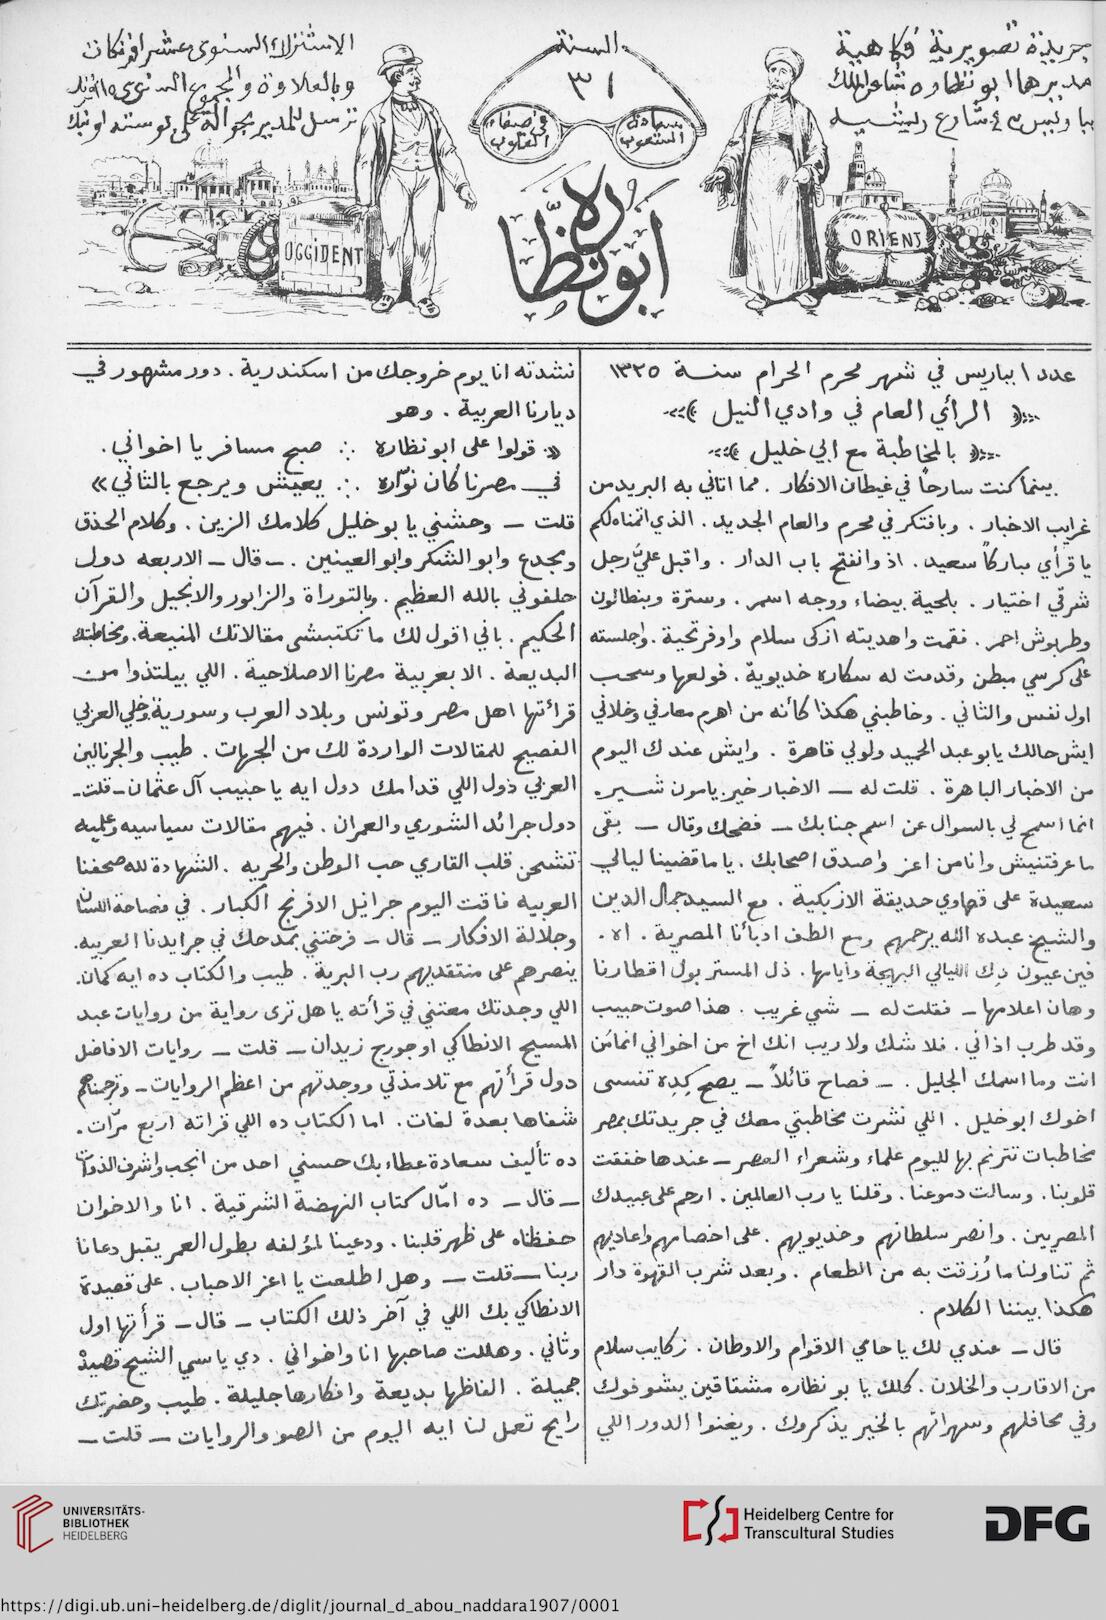 جريدة تصويرية فكاهية
مديرها ابو نظاره شاعر الملك
بباريس ٤٣ شارع ريشيه
السنة
٣١
سعادة الشعوب
في صفاء القلوب
ابو نظاره
الاشتراك السنوي عشر افرنكات
وبالعلاوة والمجموع السنوي
ترسل للمدير بحوالة على بوسته او بنك
ORIENT
OCCIDENT
عدد ١ بباريس في شهر محرم الحرام سنة ١٣٢٥
الرأي العام في وادي النيل
بالمخاطبة مع ابي خليل
بينما كنت سارحاً في غيطان الافكار . مما اتاني به البريد من
غرايب الاخبار . وبافتكر في محرم والعام الجديد . الذي اتمناه لكم
يا قرأي مباركاً سعيد . اذ وانفتح باب الدار . واقبل عليَّ رجل
شرقي اختيار . بلحية بيضاء ووجه اسمر . وسترة وبنطالون
وطربوش احمر . فقمت واهديته ازكى سلام واوفر تحية . واجلسته
على كرسي مبطن وقدمت له سكاره خديوية . فولعها وسحب
اول نفس والثاني . وخاطبني هكذا كأنه من اهرم معارفي وخلاني
ايش حالك يا بو عبد الحميد ولولي قاهرة . وايش عندك اليوم
من الاخبار الباهرة . قلت له — الاخبار خير يا مون شير .
انما اسمح لي بالسوال عن اسم جنابك — فضحك وقال — بقى
ما عرفتنيش وانا من اعز واصدق اصحابك . يا ما قضينا ليالي
سعيدة على قهاوي حديقة الازبكية . مع السيد جمال الدين
والشيخ عبده الله يرحمهم ومع الطف ادبائنا المصرية . اه .
فين عيون دِك الليالي البهيجة وايامها . ذل المستر بول اقطارنا
وهان اعلامها — فقلت له — شي غريب . هذا صوت حبيب
وقد طرب اذاني . فلا شك ولا ريب انك اخ من اخواني انما من
انت وما اسمك الجليل . — فصاح قائلاً — يصح كِدِه تنسى
اخوك ابو خليل . اللي نشرت مخاطبتي معك في جريدتك بمصر
مخاطبات تترنم بها لليوم علماء وشعراء العصر — عندها خفقت
قلوبنا . وسالت دموعنا . وقلنا يا رب العالمين . ارحم على عبيدك
المصريين . وانصر سلطانهم وخديويهم . على اخصامهم واعاديهم
ثم تناولنا ما رُزقت به من الطعام . وبعد شرب القهوة دار
هكذا بيننا الكلام .
قال — عندي لك يا حامي الاقوام والاوطان . زكايب سلام
من الاقارب والخلان . كلك يا بو نظاره مشتاقين يشوفوك
وفي محافلهم وسهراتهم بالخير يذكروك . ويغنوا الدور اللي
نشدته انا يوم خروجك من اسكندرية . دور مشهور في
ديارنا العربية . وهو
« قولوا على ابو نظاره ∴ صبح مسافر يا اخواني .
في مصرنا كان نوّاره ∴ يعيش ويرجع بالثاني »
قلت — وحشني يا بو خليل كلامك الزين . وكلام الحذق
وبجدع وابو الشكر وابو العينين . — قال — الاربعه دول
حلفوني بالله العظيم . وبالتوراة والزابور والانجيل والقرآن
الحكيم . باني اقول لك ما تكتبشي مقالاتك المنيعة . ومخاطبتك
البديعة . الا بعربية مصرنا الاصلاحية . اللي بيلتذوا من
قرائتها اهل مصر وتونس وبلاد العرب وسورية وخلي العربي
الفصيح للمقالات الواردة لك من الجهات . طيب والجرنالين
العربي دول اللي قدامك دول ايه يا حبيب آل عثمان — قلت —
دول جرائد الشوري والعمران . فيهم مقالات سياسيه وعلميه
تشحن قلب القاري حب الوطن والحريه . الشهادة لله صحفنا
العربيه فاقت اليوم جرانيل الافرنج الكبار . في فصاحة اللسان
وجلالة الافكار — قال — فرحتني بمدحك في جرايدنا العربيه .
ينصرهم على منتقديهم رب البرية . طيب والكتاب ده ايه كمان .
اللي وجدتك معتني في قرأته يا هل ترى رواية من روايات عبد
المسيح الانطاكي او جورج زيدان — قلت — روايات الافاضل
دول قرأتهم مع تلامذتي ووجدتهم من اعظم الروايات — وترجمناهم
شفاها بعدة لغات . اما الكتاب ده اللي قراته اربع مرّات .
ده تأليف سعادة عطاء بك حسني احد من انجب واشرف الذوات
— قال — ده امّال كتاب النهضة الشرقية . انا والاخوان
حفظناه على ظهر قلبنا . ودعينا لمؤلفه بطول العمر يقبل دعانا
ربنا — قلت — وهل اطلعت يا اعز الاحباب . على قصيدة
الانطاكي بك اللي في آخر ذلك الكتاب — قال — قرأتها اول
وثاني . وهللت صاحبها انا واخواني . دي يا سي الشيخ قصيدة
جميلة . الفاظها بديعة وافكارها جليلة . طيب وحضرتك
رايح تعمل لنا ايه اليوم من الصو والروايات — قلت —
UNIVERSITÄTS-
BIBLIOTHEK
HEIDELBERG
Heidelberg Centre for
Transcultural Studies
DFG
https://digi.ub.uni-heidelberg.de/diglit/journal_d_abou_naddara1907/0001